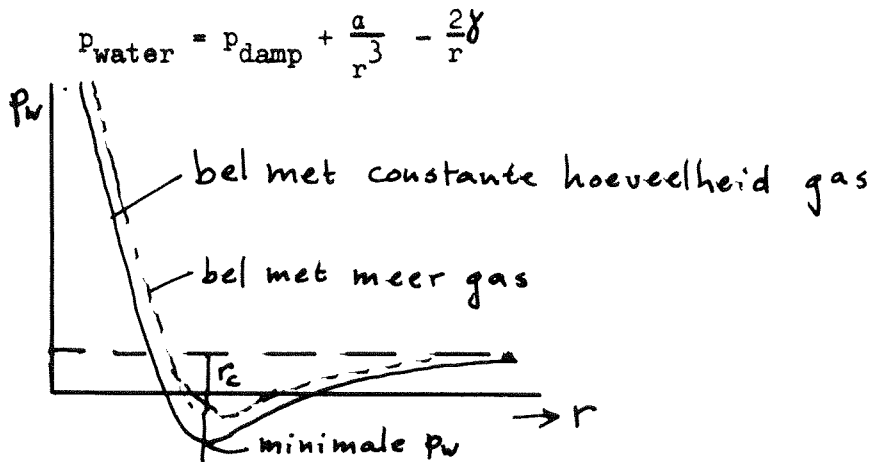 p_water = p_damp + a/r^3 - 2γ/r
p_w
bel met constante hoeveelheid gas
bel met meer gas
r_c
→ r
minimale p_w